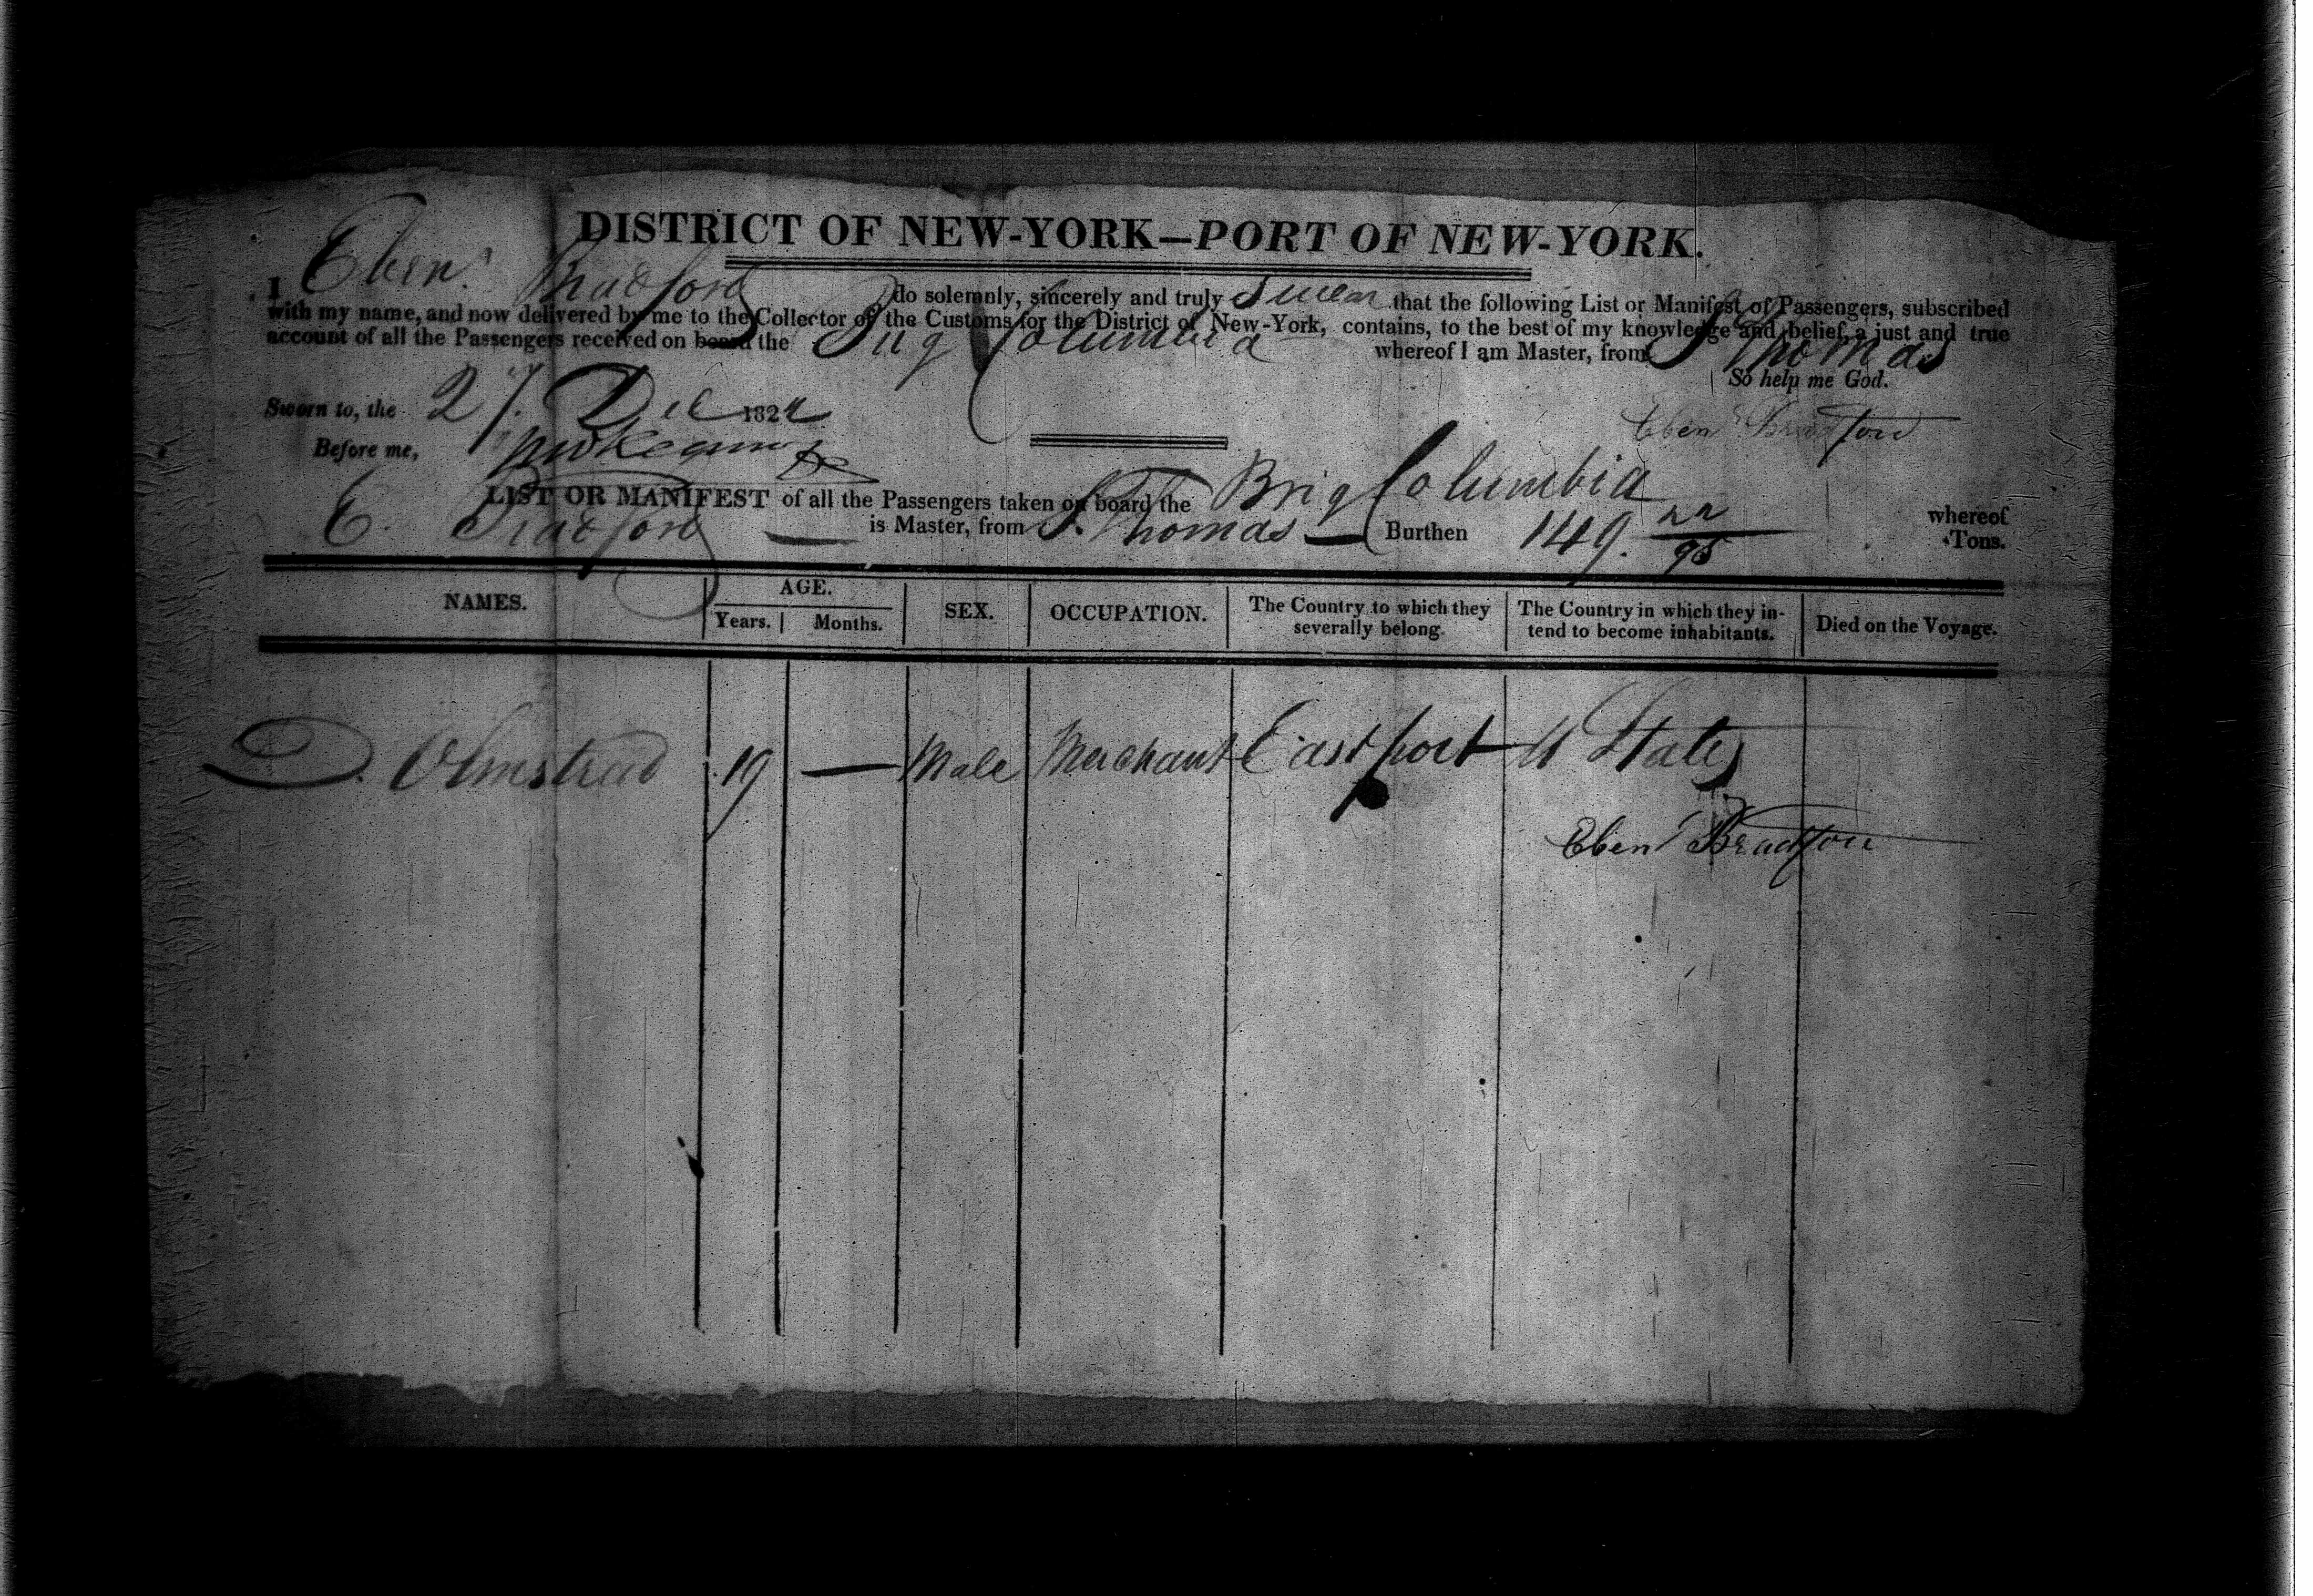 DISTRICT OF NEW-YORK—PORT OF NEW-YORK.
I Eben.r Bradford do solemnly, sincerely and truly Swear that the following List or Manifest of Passengers, subscribed
with my name, and now delivered by me to the Collector of the Customs for the District of New-York, contains, to the best of my knowledge and belief, a just and true
account of all the Passengers received on board the Brig Columbia whereof I am Master, from St Thomas
So help me God.
Sworn to, the 27. Dec 1824
Eben.r Bradford
Before me,
LIST OR MANIFEST of all the Passengers taken on board the Brig Columbia whereof
E. Bradford — is Master, from St. Thomas — Burthen 149. 22/95 Tons.
NAMES. AGE. SEX. OCCUPATION. The Country to which they severally belong. The Country in which they intend to become inhabitants. Died on the Voyage.
Years. Months.
D. Olmstead 19 — Male Merchant Eastport U States
Eben.r Bradford